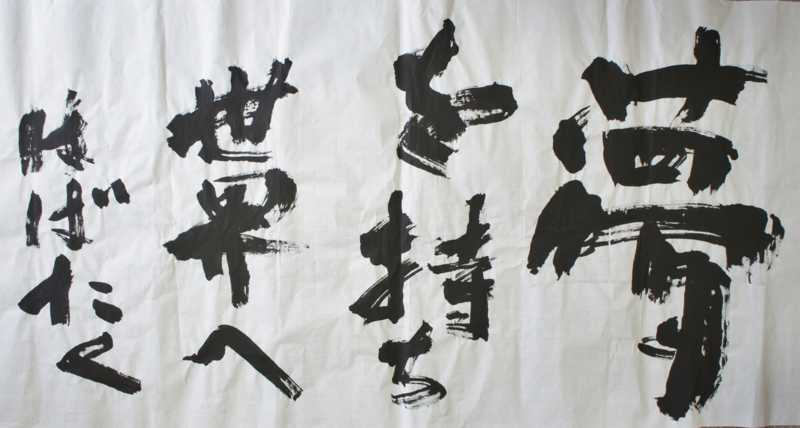 夢
を持ち
世界へ
はばたく